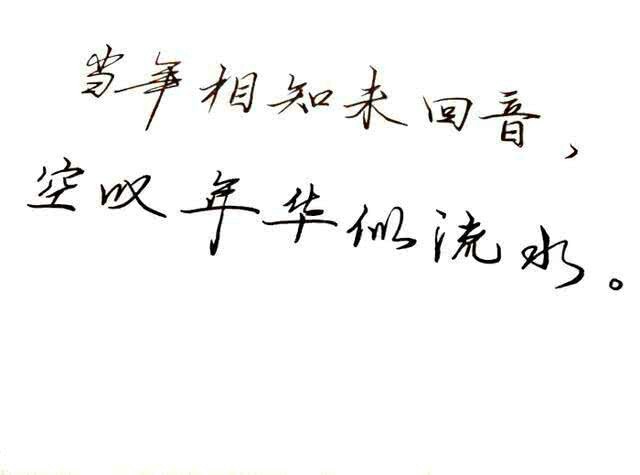 当年相知未回音，
空叹年华似流水。